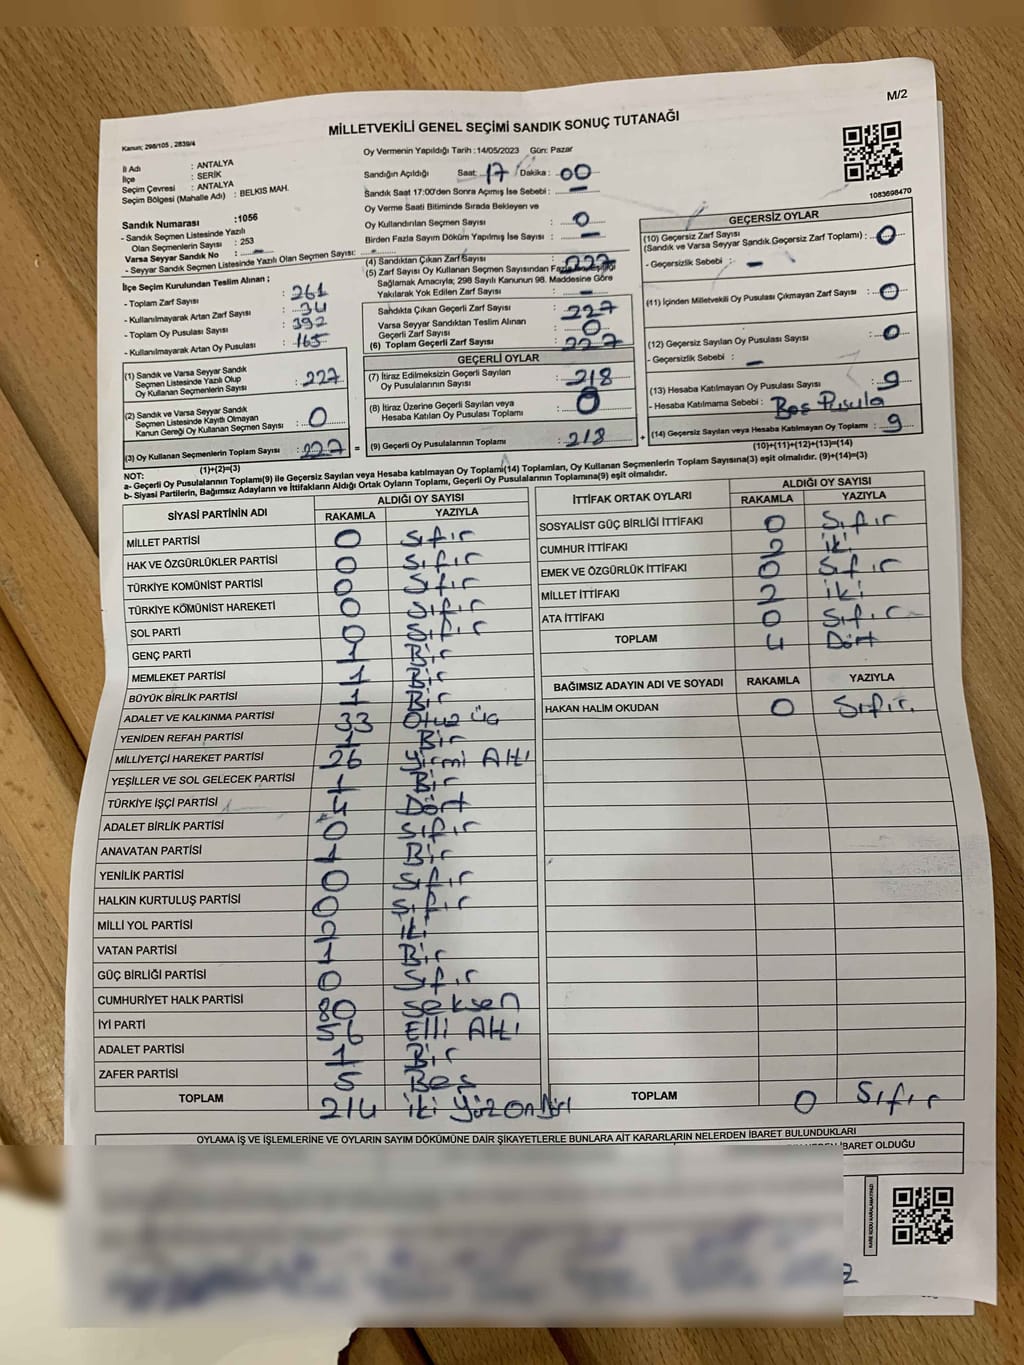 M/2
MİLLETVEKİLİ GENEL SEÇİMİ SANDIK SONUÇ TUTANAĞI
Kanun; 298/105 , 2839/4
Oy Vermenin Yapıldığı Tarih :14/05/2023 Gün: Pazar
İl Adı : ANTALYA
İlçe : SERİK
Seçim Çevresi : ANTALYA
Seçim Bölgesi (Mahalle Adı) : BELKIS MAH.
Sandığın Açıldığı Saat: 17 Dakika : 00
Sandık Saat 17:00'den Sonra Açımış İse Sebebi : —
Oy Verme Saati Bitiminde Sırada Bekleyen ve
Oy Kullandırılan Seçmen Sayısı : 0
Birden Fazla Sayım Döküm Yapılmış İse Sayısı : —
1083698470
Sandık Numarası :1056
- Sandık Seçmen Listesinde Yazılı
Olan Seçmenlerin Sayısı : 253
Varsa Seyyar Sandık No : —
- Seyyar Sandık Seçmen Listesinde Yazılı Olan Seçmen Sayısı:
İlçe Seçim Kurulundan Teslim Alınan ;
- Toplam Zarf Sayısı : 261
- Kullanılmayarak Artan Zarf Sayısı : 34
- Toplam Oy Pusulası Sayısı : 392
- Kullanılmayarak Artan Oy Pusulası : 165
(1) Sandık ve Varsa Seyyar Sandık
Seçmen Listesinde Yazılı Olup
Oy Kullanan Seçmenlerin Sayısı : 227
(2) Sandık ve Varsa Seyyar Sandık
Seçmen Listesinde Kayıtlı Olmayan
Kanun Gereği Oy Kullanan Seçmen Sayısı : 0
(3) Oy Kullanan Seçmenlerin Toplam Sayısı : 227
(1)+(2)=(3)
(4) Sandıktan Çıkan Zarf Sayısı : 227
(5) Zarf Sayısı Oy Kullanan Seçmen Sayısından Fazla
Sağlamak Amacıyla; 298 Sayılı Kanunun 98. Maddesine Göre
Yakılarak Yok Edilen Zarf Sayısı : —
Sandıkta Çıkan Geçerli Zarf Sayısı : 227
Varsa Seyyar Sandıktan Teslim Alınan
Geçerli Zarf Sayısı : 0
(6) Toplam Geçerli Zarf Sayısı : 227
GEÇERLİ OYLAR
(7) İtiraz Edilmeksizin Geçerli Sayılan
Oy Pusulalarının Sayısı : 218
(8) İtiraz Üzerine Geçerli Sayılan veya
Hesaba Katılan Oy Pusulası Toplamı : 0
= (9) Geçerli Oy Pusulalarının Toplamı : 218 +
GEÇERSİZ OYLAR
(10) Geçersiz Zarf Sayısı
(Sandık ve Varsa Seyyar Sandık Geçersiz Zarf Toplamı) : 0
- Geçersizlik Sebebi : —
(11) İçinden Milletvekili Oy Pusulası Çıkmayan Zarf Sayısı : 0
(12) Geçersiz Sayılan Oy Pusulası Sayısı : 0
- Geçersizlik Sebebi : —
(13) Hesaba Katılmayan Oy Pusulası Sayısı : 9
- Hesaba Katılmama Sebebi : Boş Pusula
(14) Geçersiz Sayılan veya Hesaba Katılmayan Oy Toplamı : 9
(10)+(11)+(12)+(13)=(14)
NOT:
a- Geçerli Oy Pusulalarının Toplamı(9) ile Geçersiz Sayılan veya Hesaba katılmayan Oy Toplamı(14) Toplamları, Oy Kullanan Seçmenlerin Toplam Sayısına(3) eşit olmalıdır. (9)+(14)=(3)
b- Siyasi Partilerin, Bağımsız Adayların ve İttifakların Aldığı Ortak Oyların Toplamı, Geçerli Oy Pusulalarının Toplamına(9) eşit olmalıdır.
SİYASİ PARTİNİN ADI ALDIĞI OY SAYISI
RAKAMLA YAZIYLA
MİLLET PARTİSİ 0 Sıfır
HAK VE ÖZGÜRLÜKLER PARTİSİ 0 Sıfır
TÜRKİYE KOMÜNİST PARTİSİ 0 Sıfır
TÜRKİYE KOMÜNİST HAREKETİ 0 Sıfır
SOL PARTİ 0 Sıfır
GENÇ PARTİ 1 Bir
MEMLEKET PARTİSİ 1 Bir
BÜYÜK BİRLİK PARTİSİ 1 Bir
ADALET VE KALKINMA PARTİSİ 33 Otuz üç
YENİDEN REFAH PARTİSİ 1 Bir
MİLLİYETÇİ HAREKET PARTİSİ 26 Yirmi Altı
YEŞİLLER VE SOL GELECEK PARTİSİ 1 Bir
TÜRKİYE İŞÇİ PARTİSİ 4 Dört
ADALET BİRLİK PARTİSİ 0 Sıfır
ANAVATAN PARTİSİ 1 Bir
YENİLİK PARTİSİ 0 Sıfır
HALKIN KURTULUŞ PARTİSİ 0 Sıfır
MİLLİ YOL PARTİSİ 2 iki
VATAN PARTİSİ 1 Bir
GÜÇ BİRLİĞİ PARTİSİ 0 Sıfır
CUMHURİYET HALK PARTİSİ 80 Seksen
İYİ PARTİ 56 Elli Altı
ADALET PARTİSİ 1 Bir
ZAFER PARTİSİ 5 Beş
TOPLAM 214 iki Yüz On Dört
İTTİFAK ORTAK OYLARI ALDIĞI OY SAYISI
RAKAMLA YAZIYLA
SOSYALİST GÜÇ BİRLİĞİ İTTİFAKI 0 Sıfır
CUMHUR İTTİFAKI 2 iki
EMEK VE ÖZGÜRLÜK İTTİFAKI 0 Sıfır
MİLLET İTTİFAKI 2 iki
ATA İTTİFAKI 0 Sıfır
TOPLAM 4 Dört
BAĞIMSIZ ADAYIN ADI VE SOYADI RAKAMLA YAZIYLA
HAKAN HALİM OKUDAN 0 Sıfır.
TOPLAM 0 Sıfır
OYLAMA İŞ VE İŞLEMLERİNE VE OYLARIN SAYIM DÖKÜMÜNE DAİR ŞİKAYETLERLE BUNLARA AİT KARARLARIN NELERDEN İBARET BULUNDUKLARI
İBARET OLDUĞU
KARE KODU KARALAMAYINIZ!